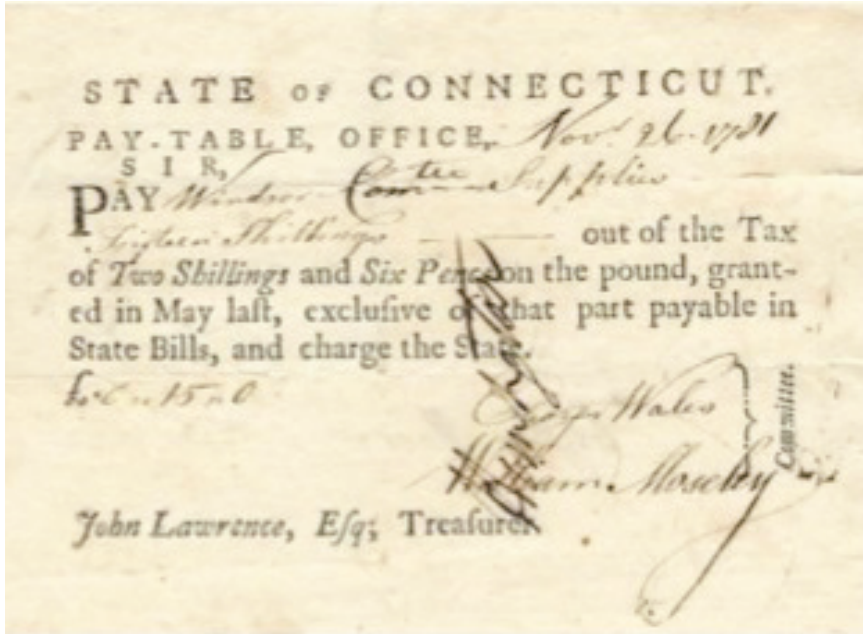 STATE OF CONNECTICUT.
PAY-TABLE, OFFICE, Novr. 26. 1781
SIR,
PAY Windsor Comtee Supplies
Fifteen Shillings out of the Tax
of Two Shillings and Six Pence on the pound, grant-
ed in May laſt, excluſive of that part payable in
State Bills, and charge the State.
£0 " 15 " 0
Wales
William Moseley
Committee.
John Lawrence, Eſq; Treaſurer.